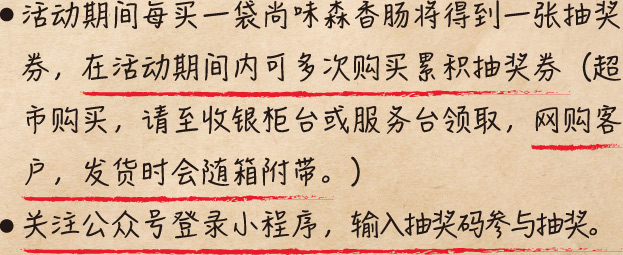 ●活动期间每买一袋尚味森香肠将得到一张抽奖
券，在活动期间内可多次购买累积抽奖券（超
市购买，请至收银柜台或服务台领取，网购客
户，发货时会随箱附带。）
●关注公众号登录小程序，输入抽奖码参与抽奖。